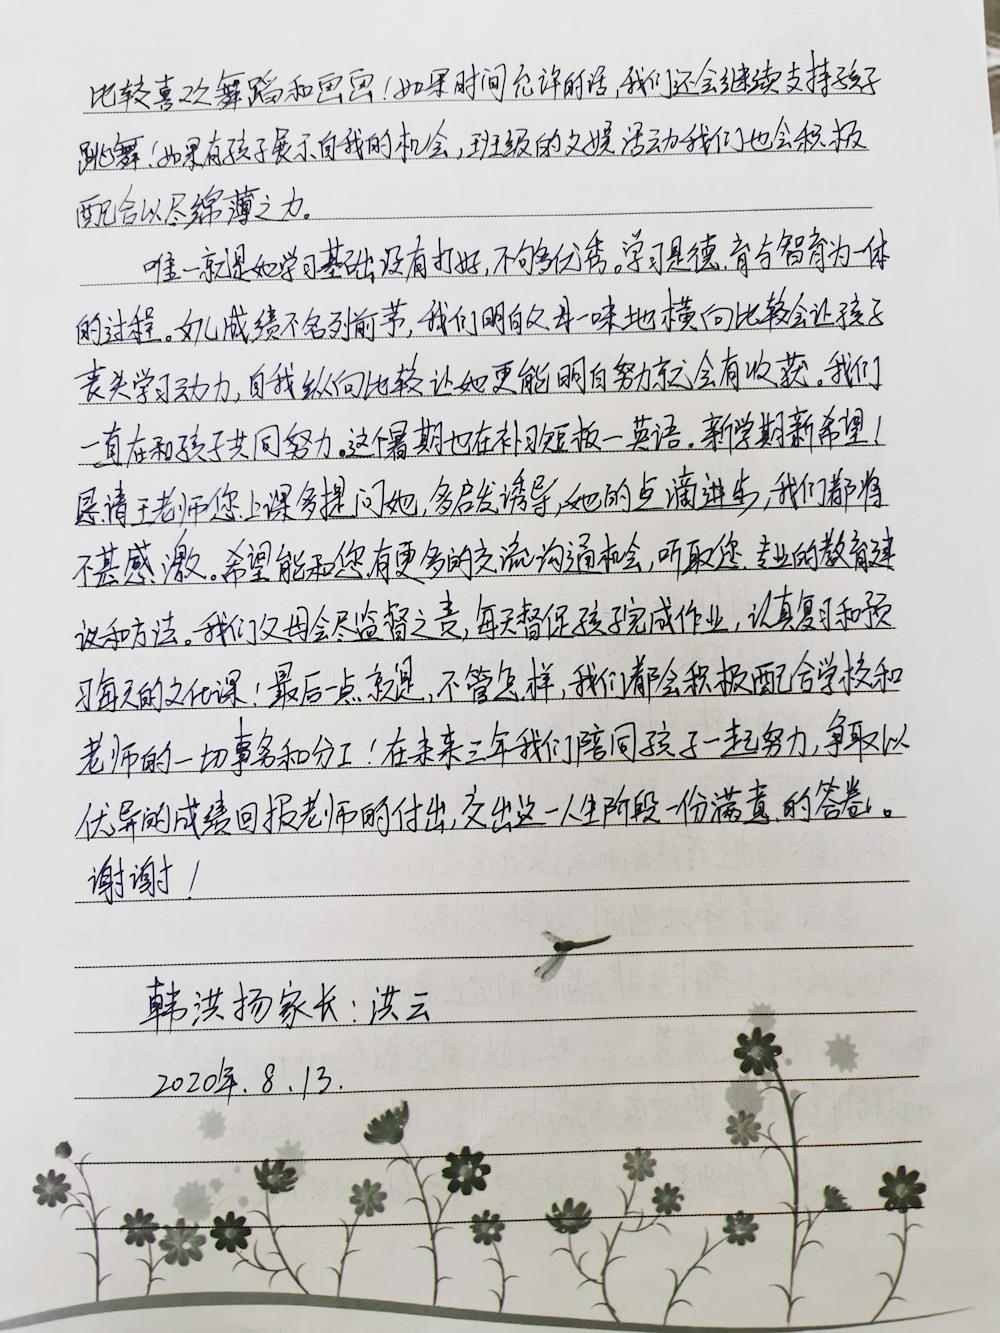 比较喜欢舞蹈和画画！如果时间允许的话，我们还会继续支持孩子
跳舞！如果有孩子展示自我的机会，班级的文娱活动我们也会积极
配合以尽绵薄之力。
唯一就是她学习基础没有打好，不够优秀。学习是德育与智育为一体
的过程。女儿成绩不名列前茅，我们明白父母一味地横向比较会让孩子
丧失学习动力，自我纵向比较让她更能明白努力就会有收获。我们
一直在和孩子共同努力。这个暑期也在补习短板一英语。新学期新希望！
恳请王老师您上课多提问她，多启发诱导，她的点滴进步，我们都将
不甚感激。希望能和您有更多的交流沟通机会，听取您专业的教育建
议和方法。我们父母会尽监督之责，每天督促孩子完成作业，认真复习和预
习每天的文化课！最后一点就是，不管怎样，我们都会积极配合学校和
老师的一切事务和分工！在未来三年我们陪同孩子一起努力，争取以
优异的成绩回报老师的付出，交出这一人生阶段一份满意的答卷。
谢谢！
韩洪扬家长：洪云
2020年.8.13.